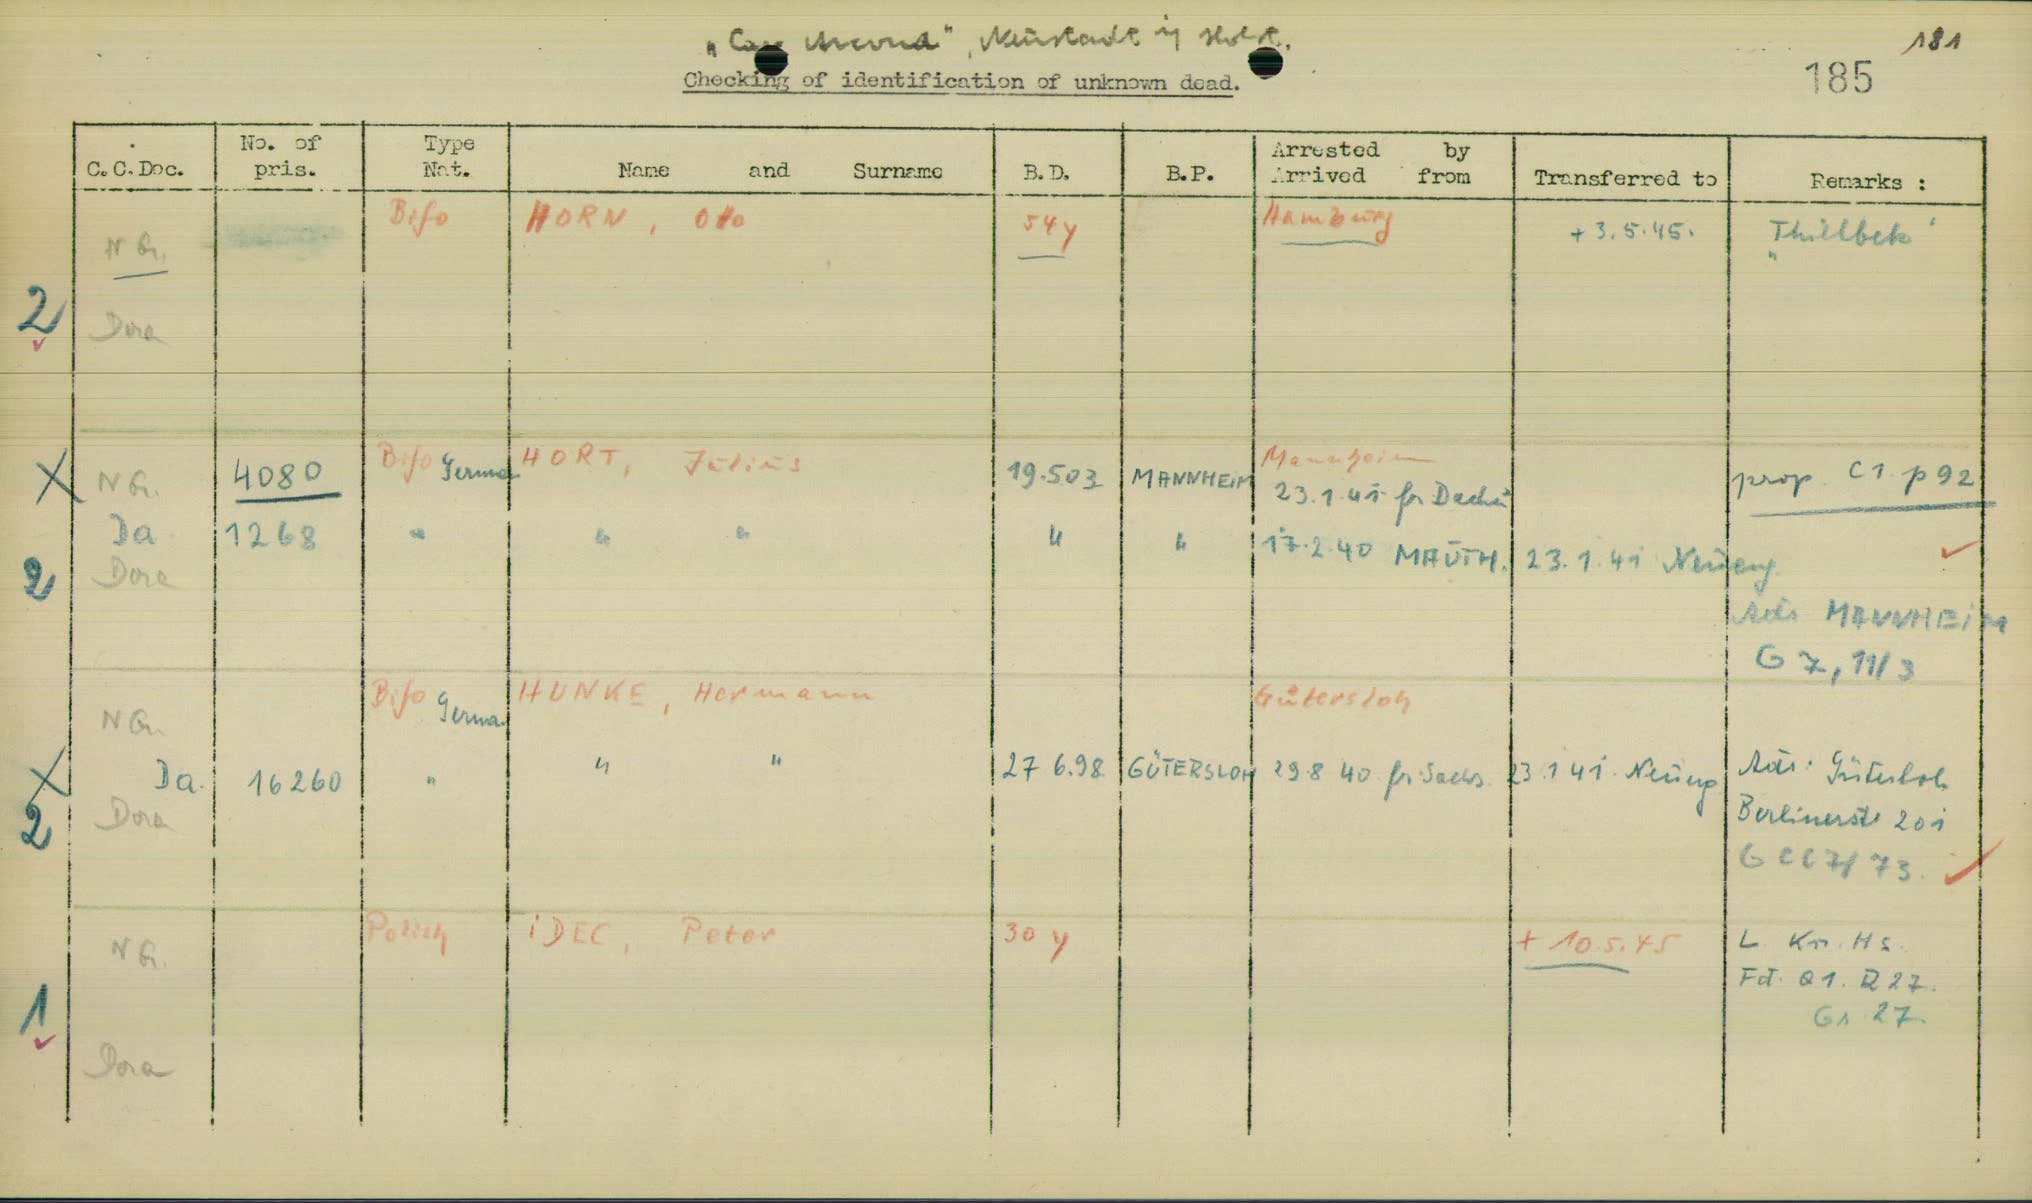 "Cap Arcona", Neustadt i/ Holst.
181
185
Checking of identification of unknown dead.
C.C.Doc. No. of pris. Type Nat. Name and Surname B.D. B.P. Arrested by Arrived from Transferred to Remarks :
Bifo HORN, Otto 54y Hamburg + 3.5.45. "Thielbek"
N Gr.
2
Dora
Bifo German HORT, Julius Mannheim
X N Gr. 4080 19.5 03 MANNHEiM 23.1.41 fr Dachau prop. C1. p 92
Da. 1268 " " " " " 17.2.40 MAUTH. 23.1.41 Neueng.
2 Dora
Adr MANNHEiM
G 7, 11/3
Bifo German HUNKE, Hermann Gütersloh
N Gr.
X Da. 16260 " " " 27 6.98 GÜTERSLOH 29 8 40 fr. Sachs. 23.1 41. Neueng Adr: Gütersloh
2 Dora Berlinerstr 201
G CC7/ 73.
Polish iDEC, Peter 30 y + 10.5.45 L. Kr. Hs.
N Gr.
Fd. Q1. R 27.
1 Gr. 27.
Dora